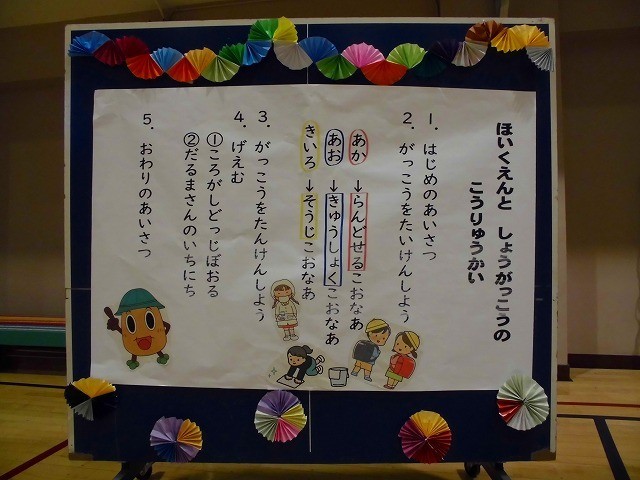 ほいくえんと しょうがっこうの
こうりゅうかい
1. はじめのあいさつ
2. がっこうをたいけんしよう
あか →らんどせるこおなあ
あお →きゅうしょくこおなあ
きいろ →そうじこおなあ
3. がっこうをたんけんしよう
4. げえむ
①ころがしどっじぼおる
②だるまさんのいちにち
5. おわりのあいさつ